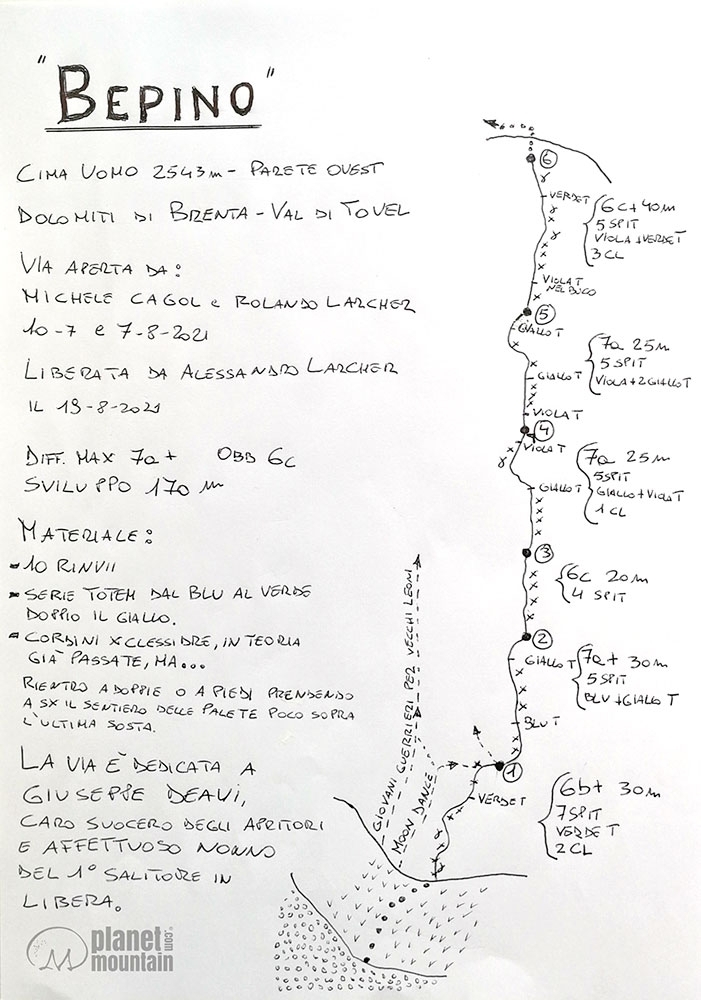 "BEPINO"
CIMA UOMO 2543m - PARETE OVEST
DOLOMITI DI BRENTA - VAL DI TOVEL
VIA APERTA DA:
MICHELE CAGOL e ROLANDO LARCHER
10-7 e 7-8-2021
LIBERATA DA ALESSANDRO LARCHER
IL 19-8-2021
DIFF. MAX 7a+ OBB 6c
SVILUPPO 170 m
MATERIALE:
- 10 RINVII
- SERIE TOTEM DAL BLU AL VERDE
DOPPIO IL GIALLO.
- CORDINI X CLESSIDRE, IN TEORIA
GIÀ PASSATE, MA...
RIENTRO A DOPPIE O A PIEDI PRENDENDO
A SX IL SENTIERO DELLE PALETE POCO SOPRA
L'ULTIMA SOSTA.
LA VIA È DEDICATA A
GIUSEPPE DEAVI,
CARO SUOCERO DEGLI APRITORI
E AFFETTUOSO NONNO
DEL 1° SALITORE IN
LIBERA.
6
VERDE T
6c+ 40m
5 SPIT
VIOLA+VERDE T
3 CL
VIOLA T
NEL BUCO
5
GIALLO T
7a 25m
5 SPIT
VIOLA+2 GIALLO T
GIALLO T
VIOLA T
4
VIOLA T
7a 25m
5 SPIT
GIALLO+VIOLA T
1 CL
GIALLO T
3
6c 20m
4 SPIT
2
GIALLO T
7a+ 30m
5 SPIT
BLU+GIALLO T
BLU T
1
VERDE T
6b+ 30m
7 SPIT
VERDE T
2 CL
GIOVANI GUERRIERI PER VECCHI LEONI
MOON DANCE
planet
mountain
.com